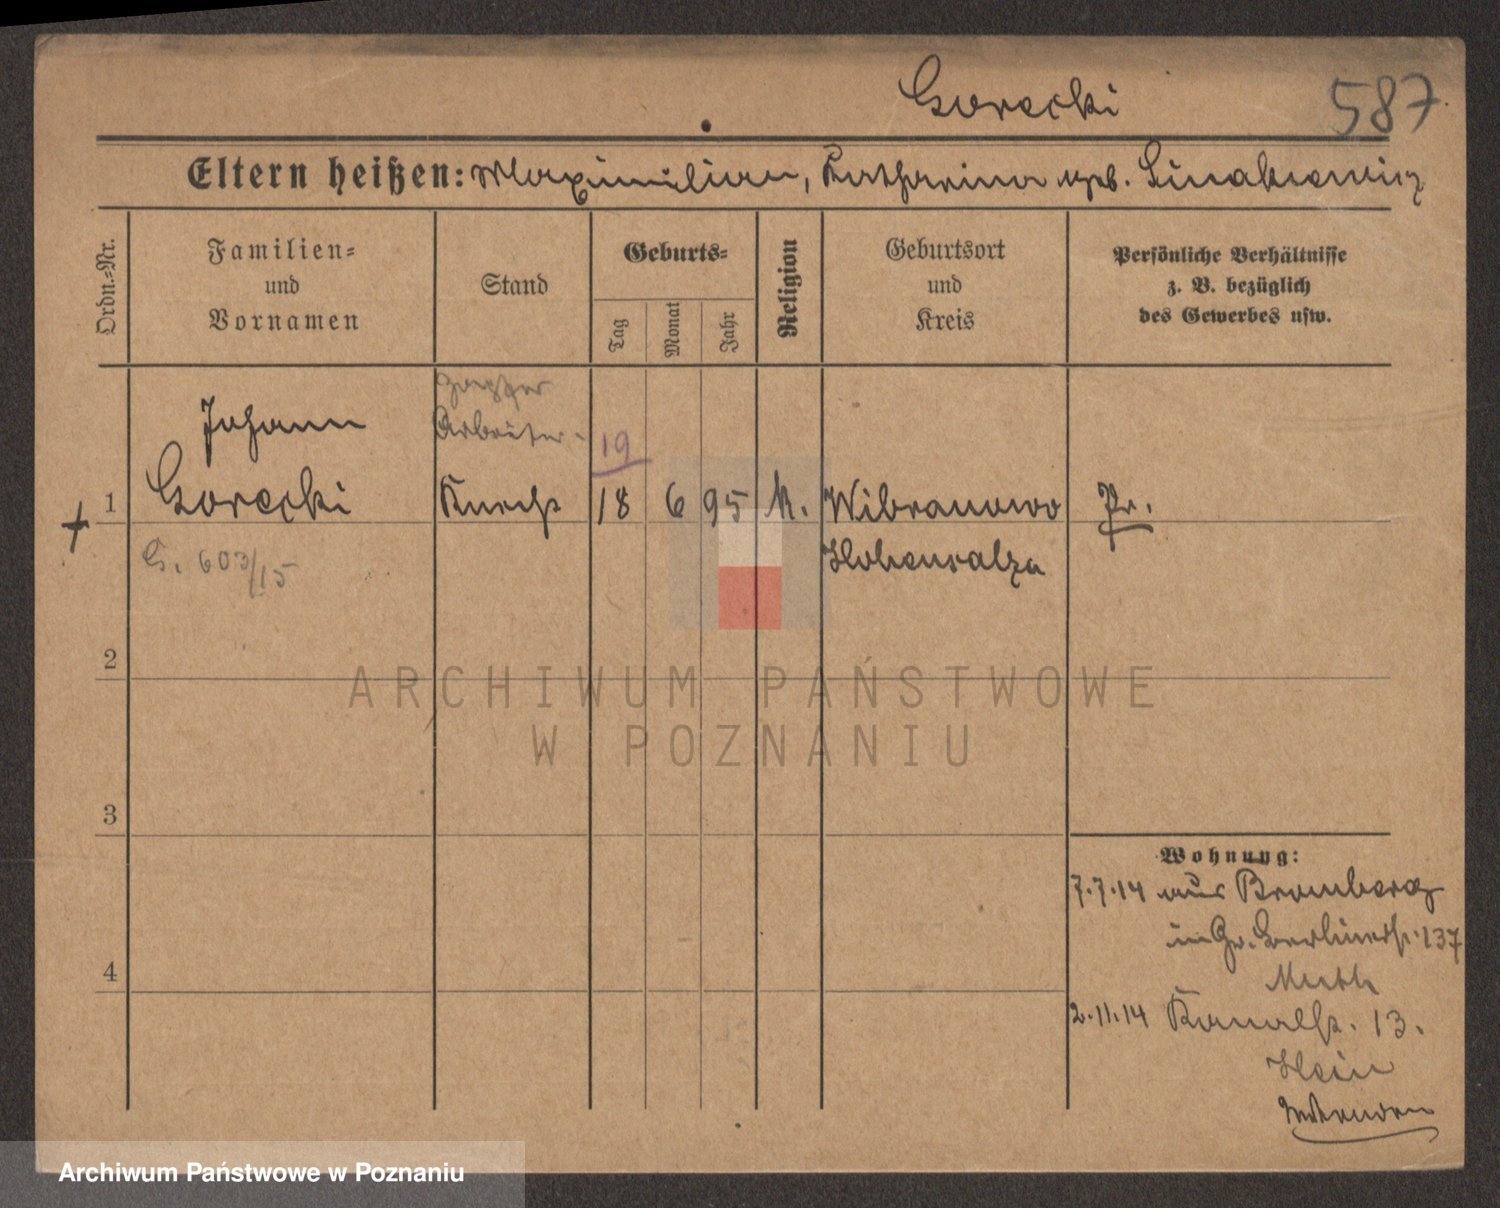 Gorecki
587
Eltern heißen: Maximilian, Katharina geb. Sinakiewicz
Ordn.-Nr.
Familien-
und
Vornamen
Stand
Geburts-
Tag
Monat
Jahr
Religion
Geburtsort
und
Kreis
Persönliche Verhältnisse
z. B. bezüglich
des Gewerbes usw.
Johann
Arbeiter
19
1
Gorecki
Knecht
18
6
95
k.
Wibranowo
Pr.
G. 603/15
Hohensalza
2
3
4
Wohnung:
7.7.14 aus Bromberg
in Gr. Berlinerstr. 137
Muth
2.11.14 Kanalstr. 13.
Hein
ARCHIWUM PAŃSTWOWE
W POZNANIU
Archiwum Państwowe w Poznaniu